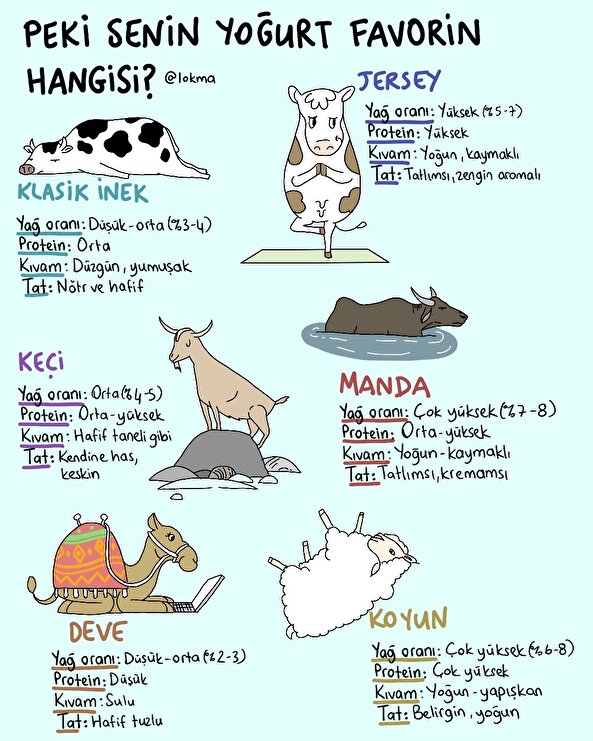 PEKİ SENİN YOĞURT FAVORİN
HANGİSİ? @lokma
JERSEY
Yağ oranı: Yüksek (%5-7)
Protein: Yüksek
Kıvam: Yoğun, kaymaklı
Tat: Tatlımsı, zengin aromalı
KLASİK İNEK
Yağ oranı: Düşük-orta (%3-4)
Protein: Orta
Kıvam: Düzgün, yumuşak
Tat: Nötr ve hafif
KEÇİ
Yağ oranı: Orta (%4-5)
Protein: Orta-yüksek
Kıvam: Hafif taneli gibi
Tat: Kendine has,
keskin
MANDA
Yağ oranı: Çok yüksek (%7-8)
Protein: Orta-yüksek
Kıvam: Yoğun-kaymaklı
Tat: Tatlımsı, kremamsı
DEVE
Yağ oranı: Düşük-orta (%2-3)
Protein: Düşük
Kıvam: Sulu
Tat: Hafif tuzlu
KOYUN
Yağ oranı: Çok yüksek (%6-8)
Protein: Çok yüksek
Kıvam: Yoğun-yapışkan
Tat: Belirgin, yoğun